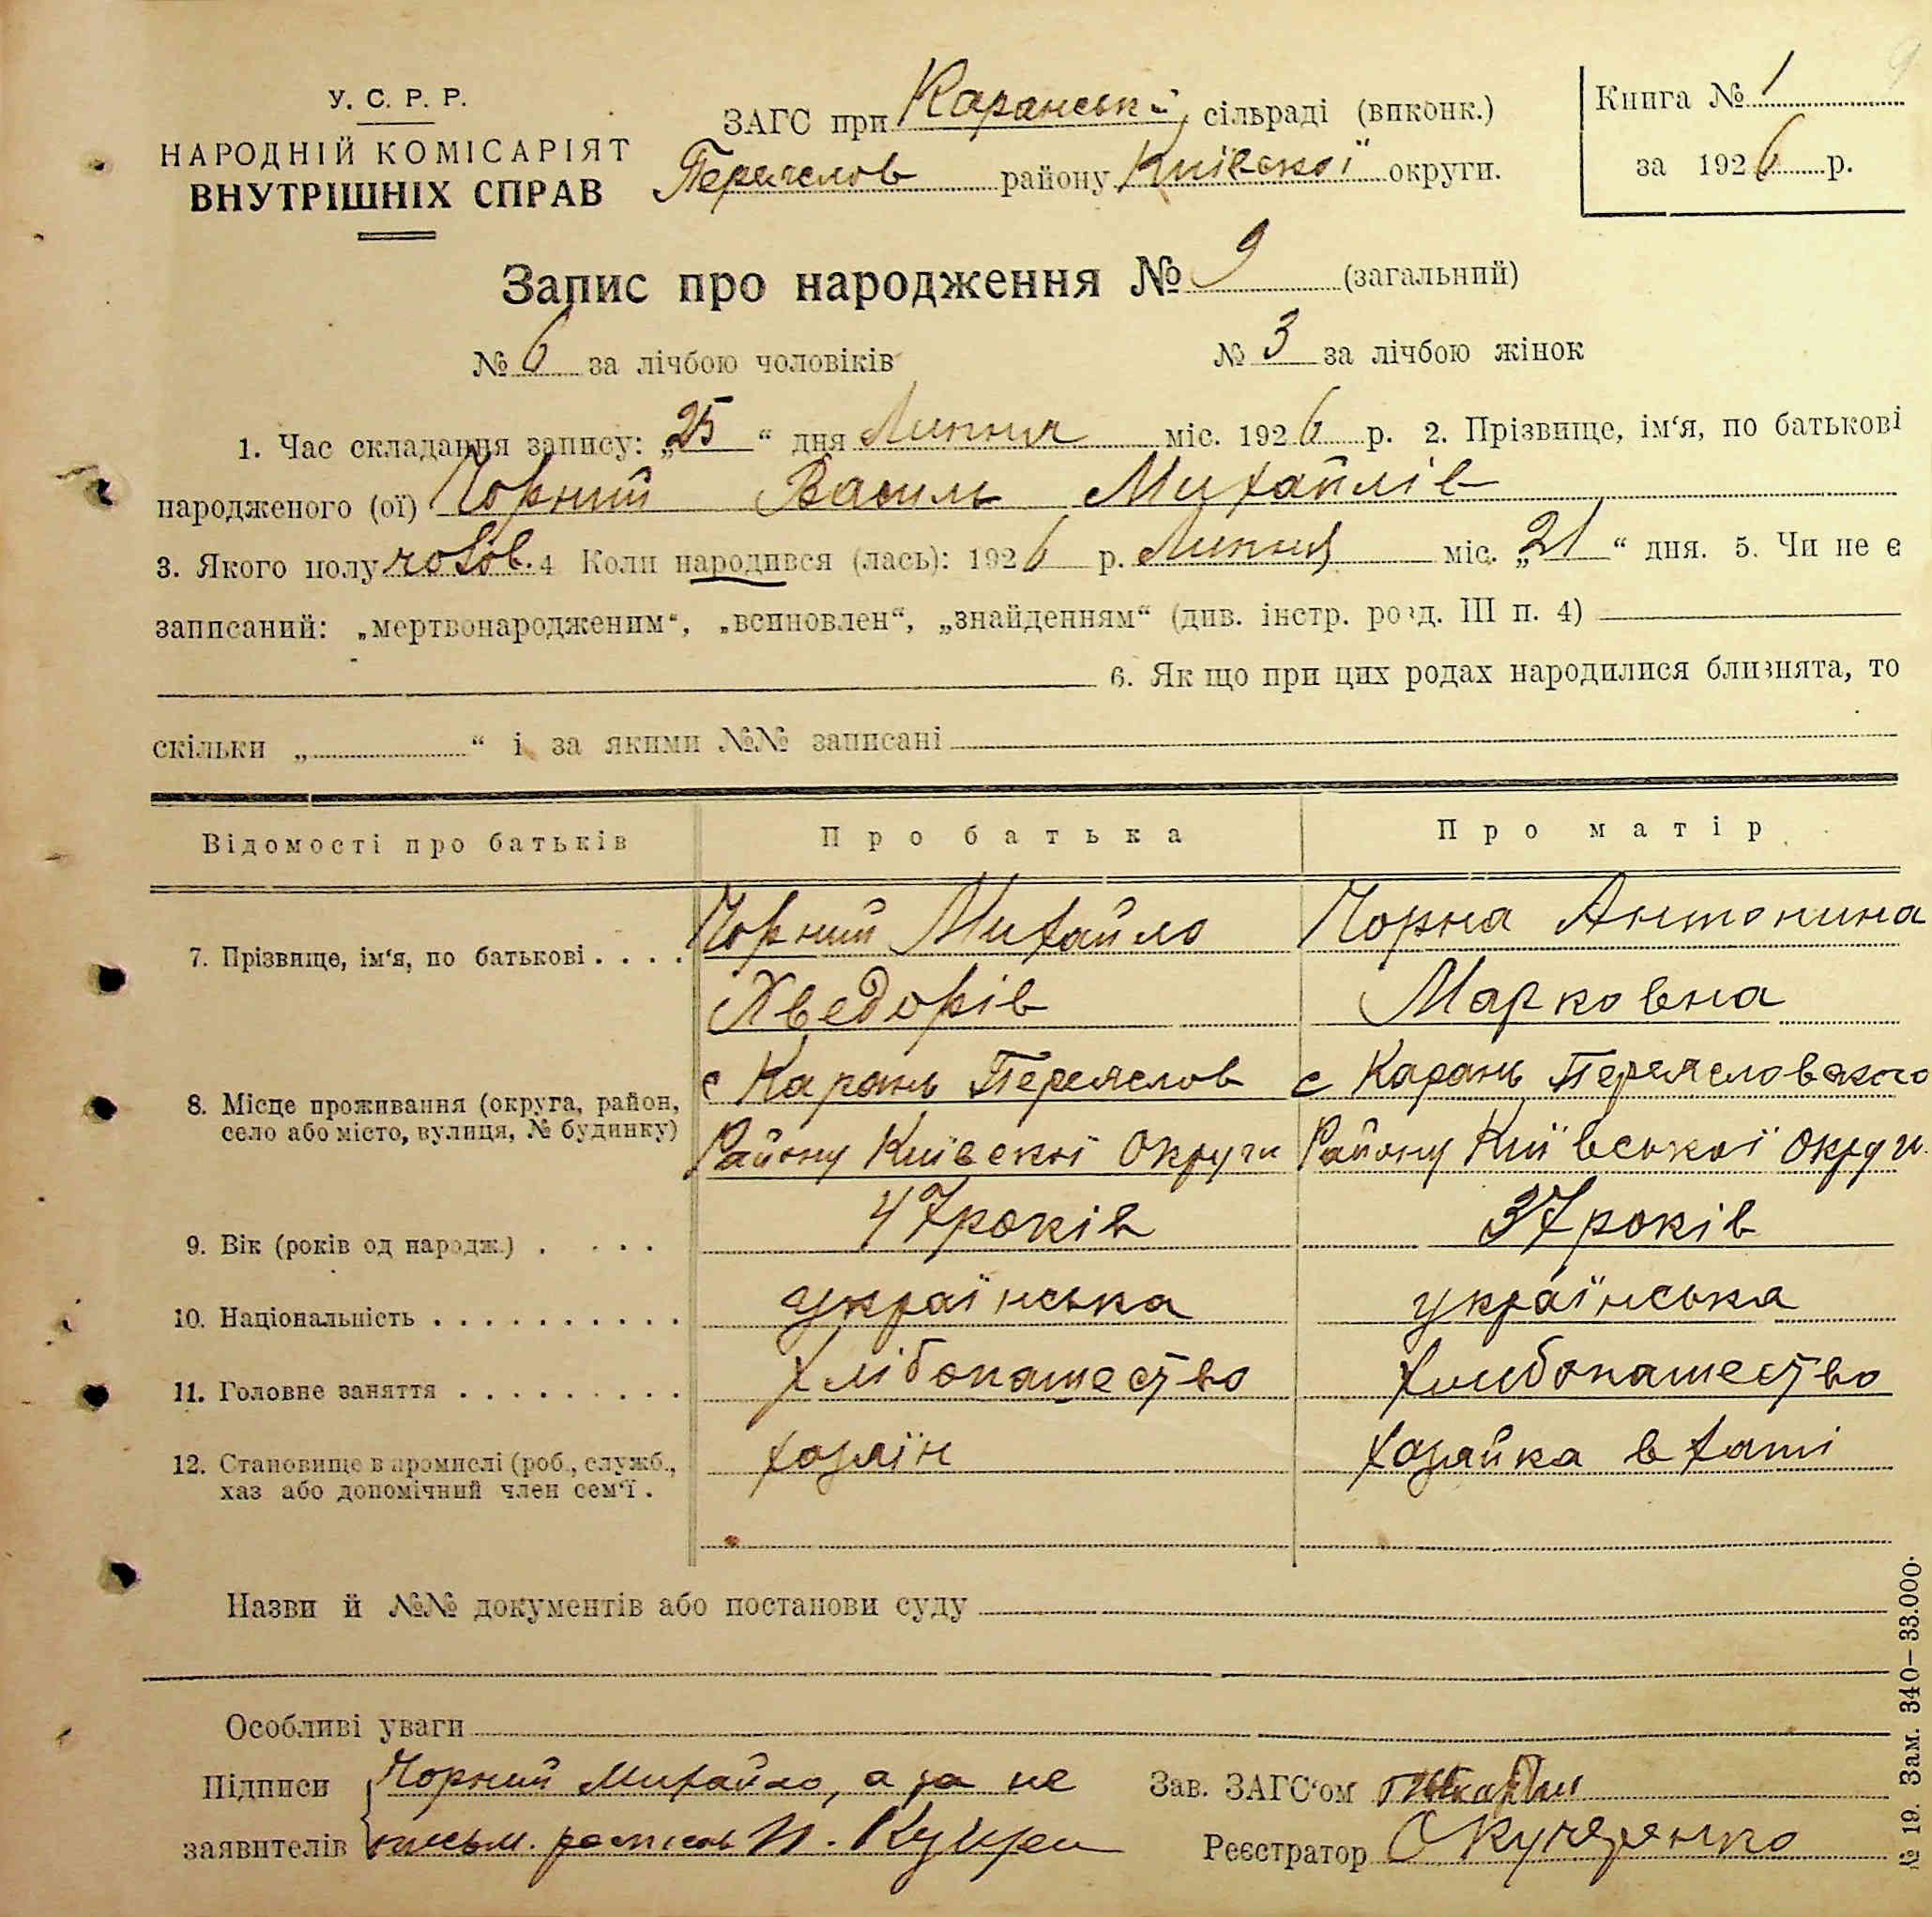 У. С. Р. Р.
НАРОДНІЙ КОМІСАРІЯТ
ВНУТРІШНІХ СПРАВ
ЗАГС при Каранській сільраді (виконк.)
Переяслов району Київскої округи.
Книга № 1
за 1926 р.
Запис про народження № 9 (загальний)
№ 6 за лічбою чоловіків № 3 за лічбою жінок
1. Час складання запису: „25“ дня Липня міс. 1926 р. 2. Прізвище, ім‘я, по батькові
народженого (ої) Чорний Василь Михайлів
3. Якого полу чолов. 4 Коли народився (лась): 1926 р. Липня міс. „21“ дня. 5. Чи не є
записаний: „мертвонародженим“, „всиновлен“, „знайденням“ (див. інстр. розд. III п. 4)
6. Як що при цих родах народилися близнята, то
скільки „ “ і за якими №№ записані
Відомості про батьків Про батька Про матір
7. Прізвище, ім‘я, по батькові . . . . Чорний Михайло Чорна Антонина
Хведорів Марковна
8. Місце проживання (округа, район, с Карань Переяслов с Карань Переясловского
село або місто, вулиця, № будинку) Району Київскої Округи Району Київської Округи
9. Вік (років од народж.) . . . . 47 років 37 років
10. Національність . . . . . . . . . . українська українська
11. Головне заняття . . . . . . . . . хлібопашество хлибопашество
12. Становище в промислі (роб., служб., хозяїн хозяйка в хаті
хаз або допомічний член сем‘ї .
Назви й №№ документів або постанови суду
Особливі уваги
Підписи Чорний Михайло, а за не Зав. ЗАГС‘ом
заявителів письм. росписав Реєстратор О Кучеренко
№ 19. Зам. 340—33.000.